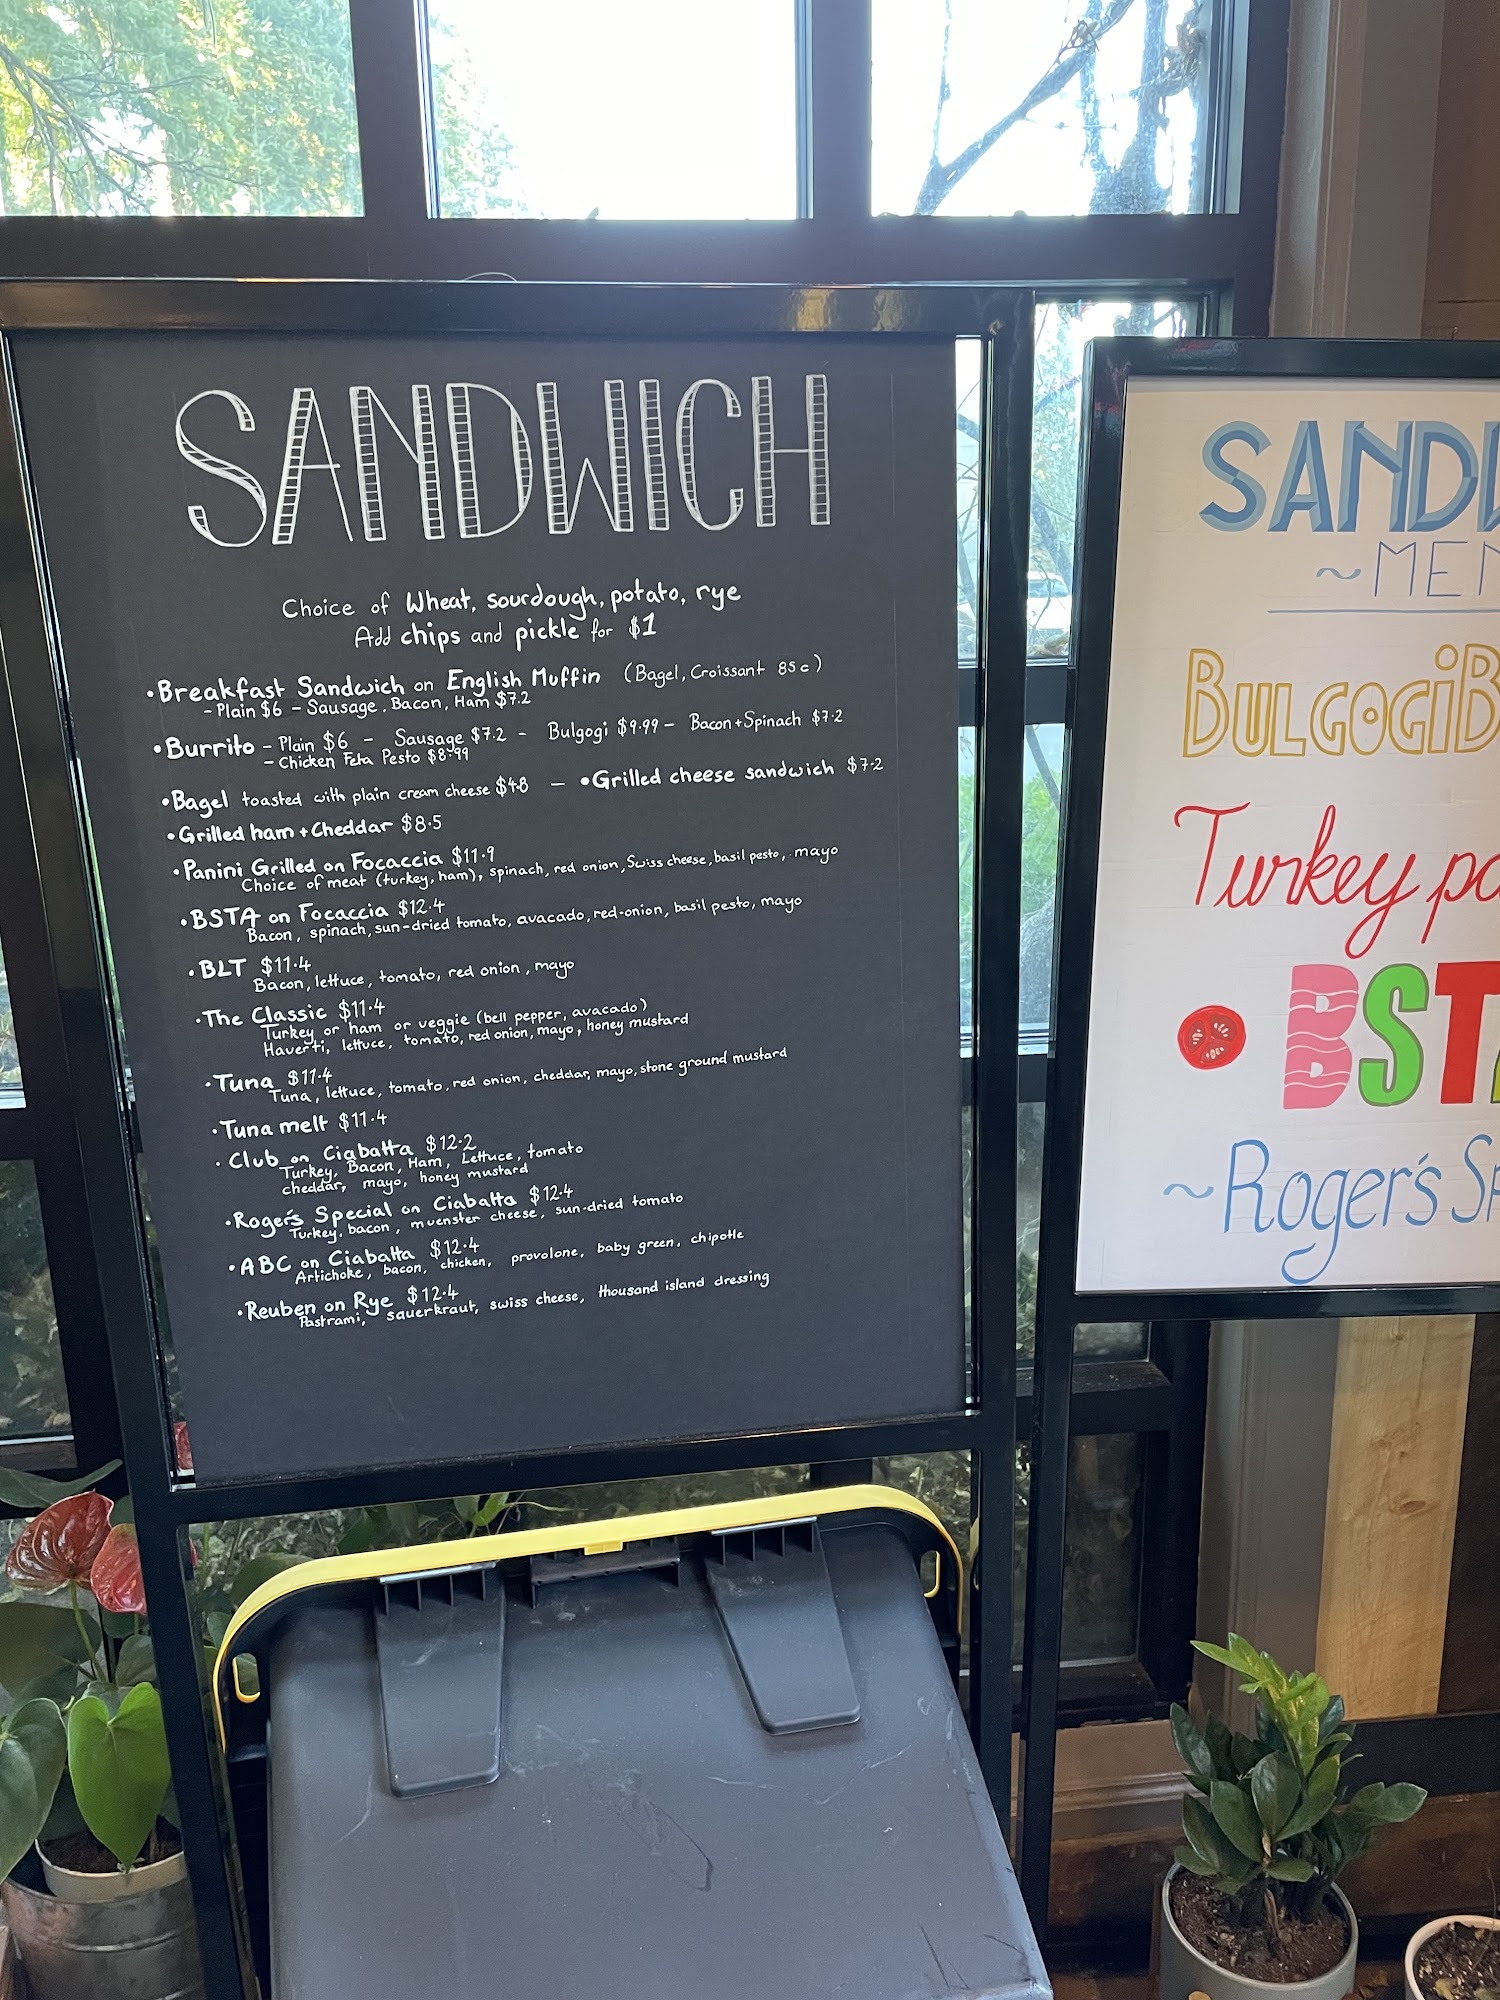 SANDWICH
Choice of Wheat, sourdough, potato, rye
Add chips and pickle for $1
• Breakfast Sandwich on English Muffin (Bagel, Croissant 85c)
- Plain $6 - Sausage, Bacon, Ham $7.2
• Burrito - Plain $6 - Sausage $7.2 - Bulgogi $9.99 - Bacon+Spinach $7.2
- Chicken Feta Pesto $8.99
• Bagel toasted with plain cream cheese $4.8 - • Grilled cheese sandwich $7.2
• Grilled ham + Cheddar $8.5
• Panini Grilled on Focaccia $11.9
Choice of meat (turkey, ham), spinach, red onion, Swiss cheese, basil pesto, mayo
• BSTA on Focaccia $12.4
Bacon, spinach, sun-dried tomato, avacado, red-onion, basil pesto, mayo
• BLT $11.4
Bacon, lettuce, tomato, red onion, mayo
• The Classic $11.4
Turkey or ham or veggie (bell pepper, avacado)
Haverti, lettuce, tomato, red onion, mayo, honey mustard
• Tuna $11.4
Tuna, lettuce, tomato, red onion, cheddar, mayo, stone ground mustard
• Tuna melt $11.4
• Club on Ciabatta $12.2
Turkey, Bacon, Ham, Lettuce, tomato
cheddar, mayo, honey mustard
• Roger's Special on Ciabatta $12.4
Turkey, bacon, muenster cheese, sun-dried tomato
• ABC on Ciabatta $12.4
Artichoke, bacon, chicken, provolone, baby green, chipotle
• Reuben on Rye $12.4
Pastrami, sauerkraut, swiss cheese, thousand island dressing
SAND
~MEN
BULGOGI B
Turkey pa
• BST
~Roger's Sp